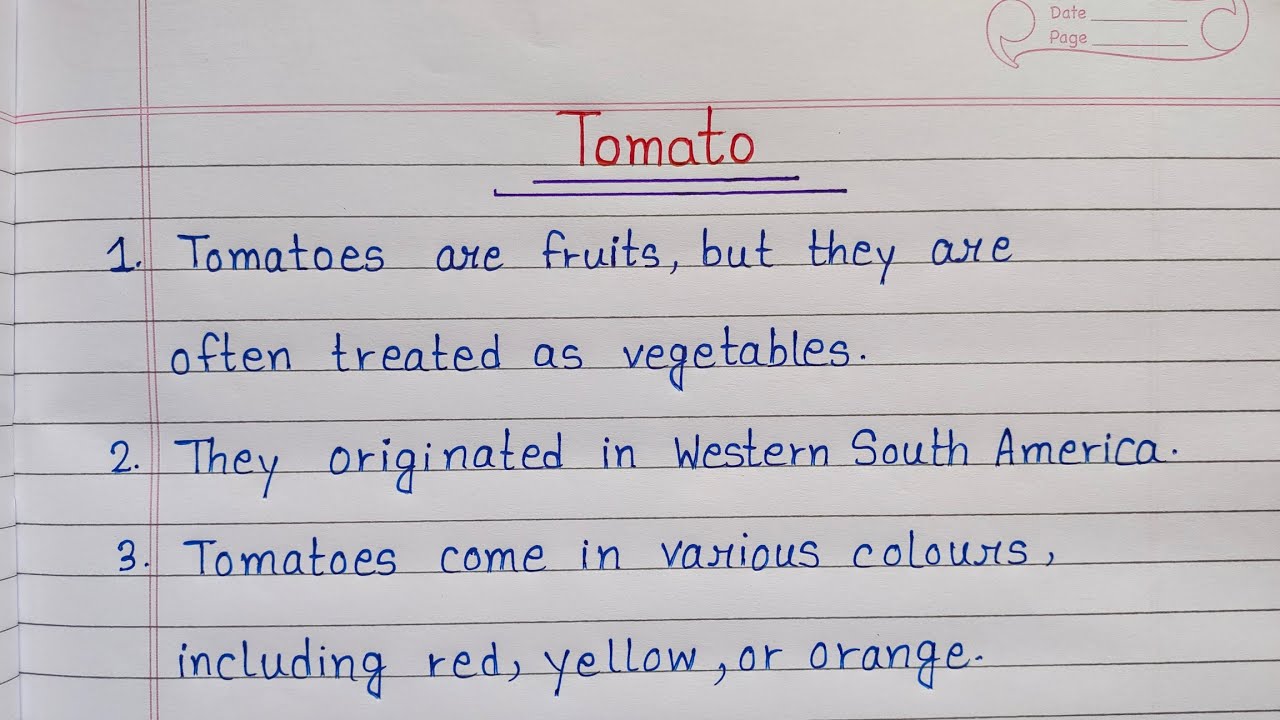 Date
Page
Tomato
1. Tomatoes are fruits, but they are
often treated as vegetables.
2. They originated in Western South America.
3. Tomatoes come in various colours,
including red, yellow, or orange.